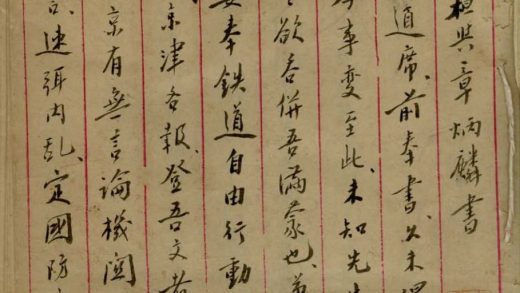 與章炳麟書
道席、前奉書、久未
事變至此、未知先生
欲吞併吾滿蒙也、
奉鉄道自由行動
京津各報、登吾文
京有無言論機関
速弭内乱、定國防